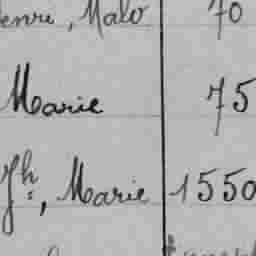 enri, Malo 70
Marie 75
Jh, Marie 1550